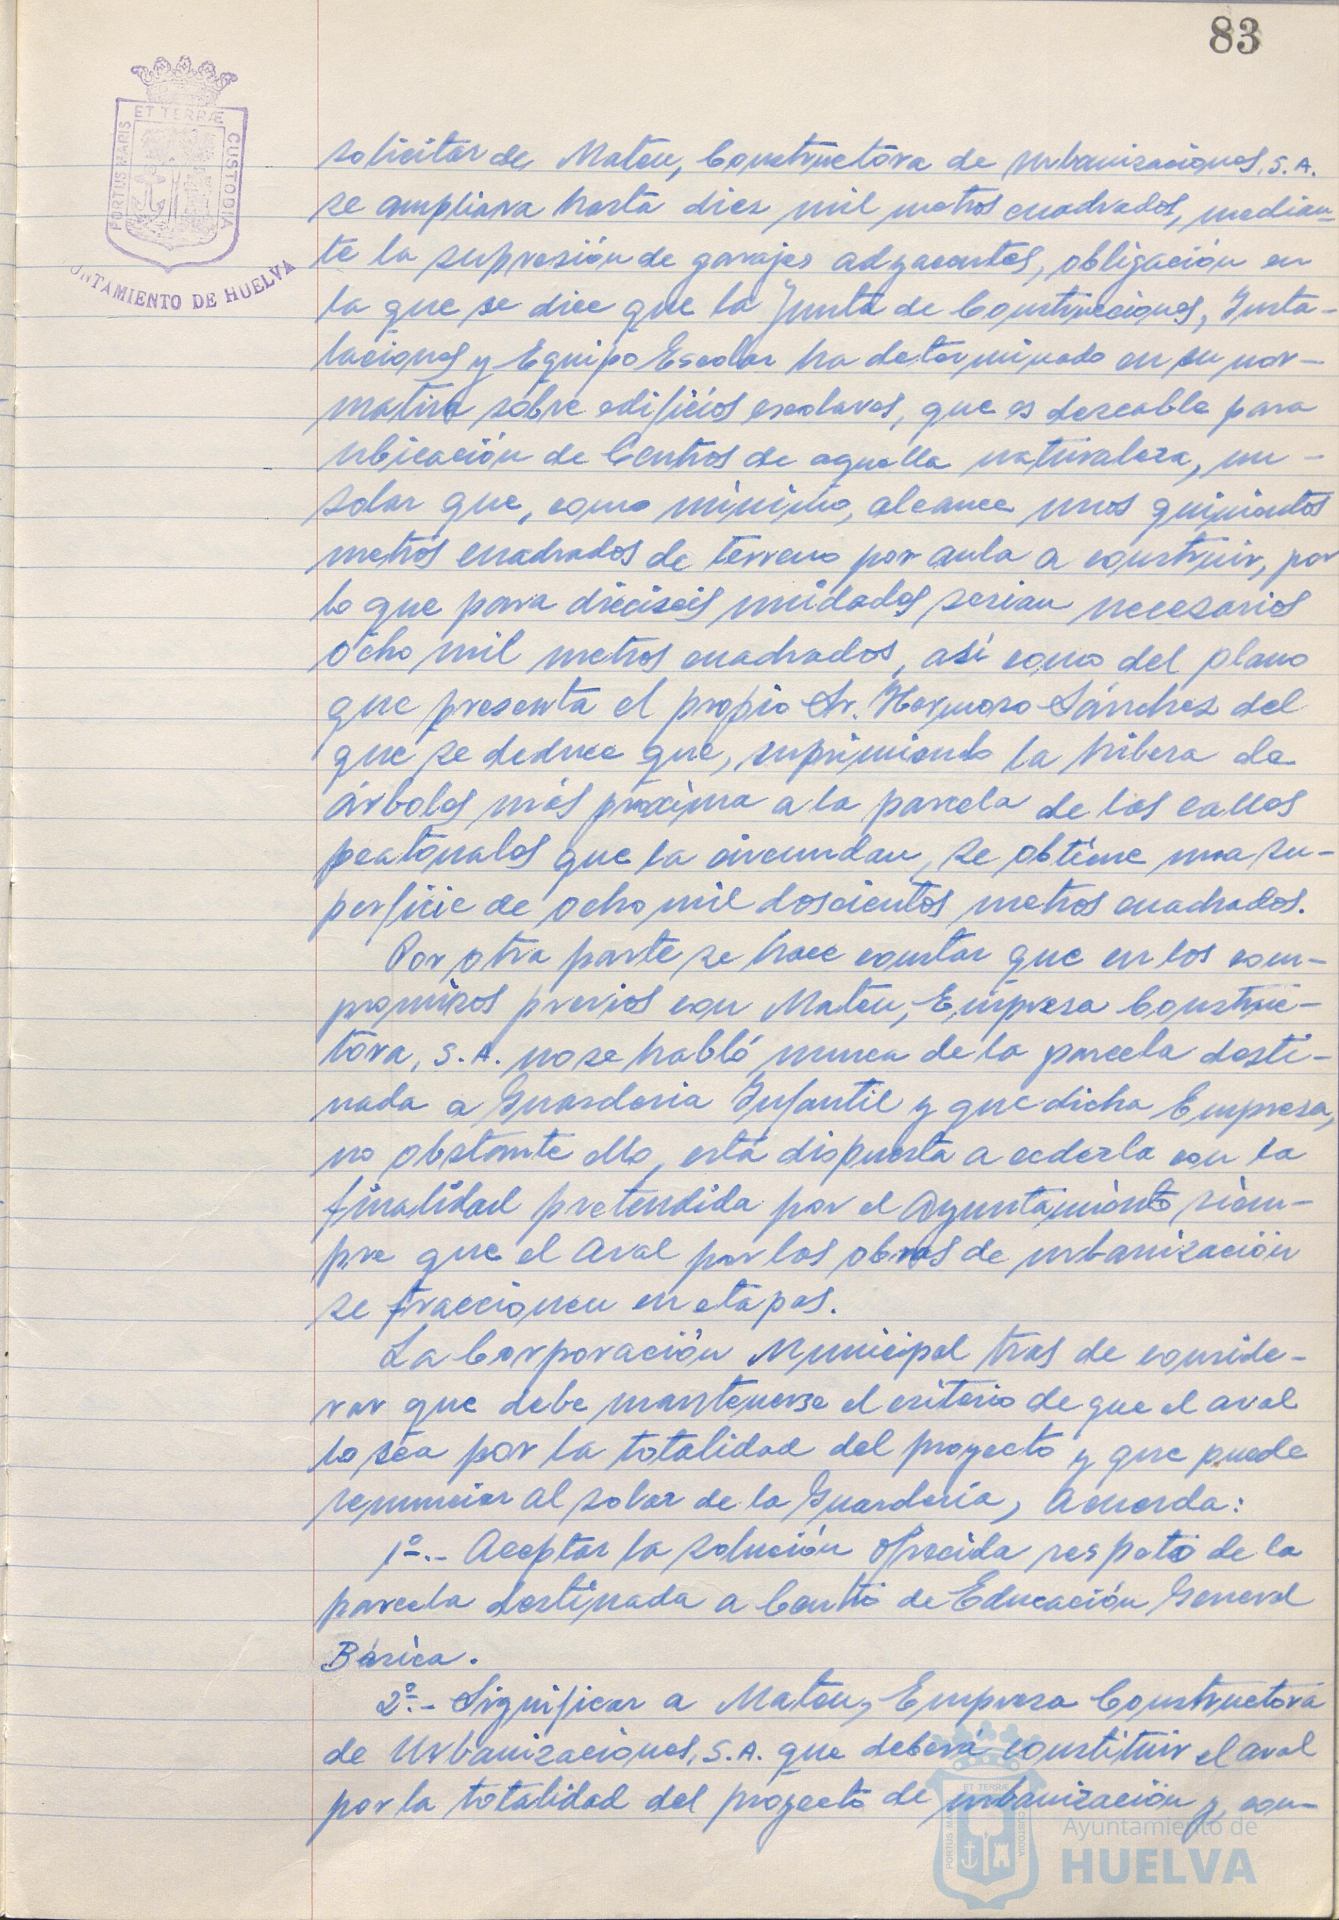 83
ET TERRÆ
PORTUS MARIS
CUSTODIA
UNTAMIENTO DE HUELVA
solicitar de Mateu, Constructora de Urbanizaciones, S.A.
se ampliara hasta diez mil metros cuadrados, median-
te la supresión de garajes adyacentes, obligación en
la que se dice que la Junta de Construcciones, Insta-
laciones y Equipo Escolar ha determinado en su nor-
mativa sobre edificios escolares, que es deseable para
ubicación de Centros de aquella naturaleza, un -
solar que, como mínimo, alcance unos quinientos
metros cuadrados de terreno por aula a construir, por
lo que para dieciseis unidades serian necesarios
ocho mil metros cuadrados, así como del plano
que presenta el propio Sr. Hermoso Sánchez del
que se deduce que, suprimiendo la hilera de
árboles más próxima a la parcela de las calles
peatonales que la circundan, se obtiene una su-
perficie de ocho mil doscientos metros cuadrados.
Por otra parte se hace constar que en los com-
promisos previos con Mateu, Empresa Construc-
tora, S.A. no se habló nunca de la parcela desti-
nada a Guarderia Infantil y que dicha Empresa,
no obstante ello, está dispuesta a cederla con la
finalidad pretendida por el Ayuntamiento, siem-
pre que el Aval por las obras de urbanización
se fraccionen en etapas.
La Corporación Municipal tras de conside-
rar que debe mantenerse el criterio de que el aval
lo sea por la totalidad del proyecto y que puede
renunciar al solar de la Guardería, Acuerda:
1º.- Aceptar la solución ofrecida respeto de la
parcela destinada a Centro de Educación General
Básica.
2º.- Significar a Mateu, Empresa Constructora
de Urbanizaciones, S.A. que deberá constituir el aval
por la totalidad del proyecto de urbanización y, con-
ET TERRÆ
CUSTODIA
Ayuntamiento de
HUELVA